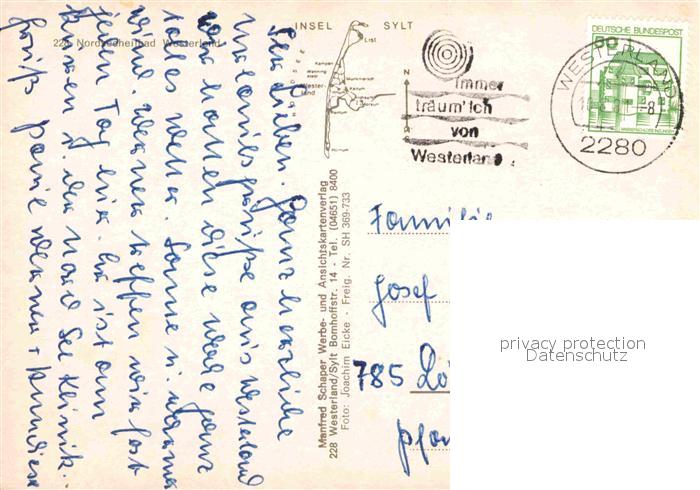 228 Nordseeheilbad Westerland
INSEL SYLT
List
Kampen
Wenning-
stedt
Wester-
land
Keitum
Morsum
N
S
immer
träum' ich
von
Westerland
DEUTSCHE BUNDESPOST
50
WESTERLAND
2280
Manfred Schaper Werbe- und Ansichtskartenverlag
228 Westerland/Sylt Bomhoffstr. 14 - Tel. (04651) 8400
Foto: Joachim Eicke - Freig. Nr. SH 369-733
Ihr Lieben. Ganz herzliche
Urlaubsgrüße aus Westerland
wir hatten diese Woche ganz
tolles Wetter. Sonne u. warmer
Wind. Werner treffen wir fast
jeden Tag hier. Er ist am
kuren i. der Nord See Klinik.
Grüß
Familie
Josef
785 Lö
privacy protection
Datenschutz